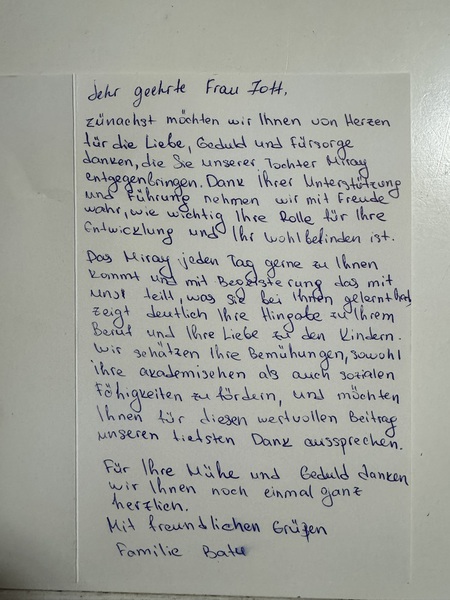 Sehr geehrte Frau Zott,
zünächst möchten wir Ihnen von Herzen
für die Liebe, Geduld und Fürsorge
danken, die Sie unserer Tochter Miray
entgegenbringen. Dank Ihrer Unterstützung
und Führung nehmen wir mit Freude
wahr, wie wichtig Ihre Rolle für Ihre
Entwicklung und Ihr wohlbefinden ist.
Das Miray jeden Tag gerne zu Ihnen
kommt und mit Begeisterung das mit
uns teilt, was sie bei Ihnen gelernt hat,
zeigt deutlich Ihre Hingabe zu Ihrem
Beruf und Ihre Liebe zu den Kindern.
Wir schätzen Ihre Bemühungen, sowohl
ihre akademischen als auch sozialen
Fähigkeiten zu fördern, und möchten
Ihnen für diesen wertvollen Beitrag
unseren tiefsten Dank aussprechen.
Für Ihre Mühe und Geduld danken
wir Ihnen noch einmal ganz
herzlich.
Mit freundlichen Grüßen
Familie Batu